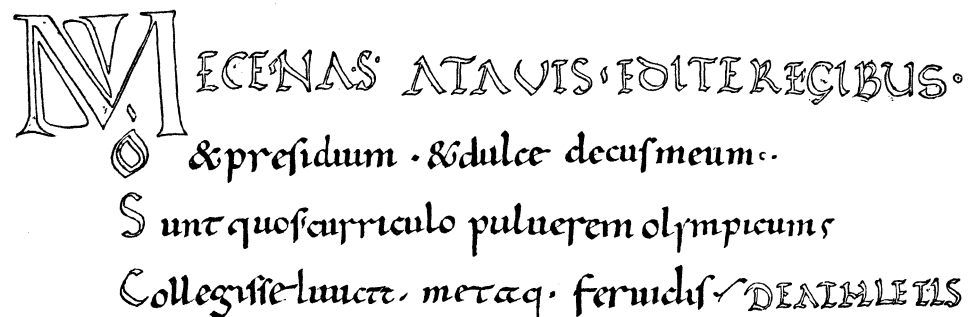 MECENAS ATAVIS · EDITE REGIBUS ·
O & presidium · & dulce decus meum ·
Sunt quos curriculo puluerem olympicum ;
Collegisse iuuat · metaq · feruidis DEATHLETIS